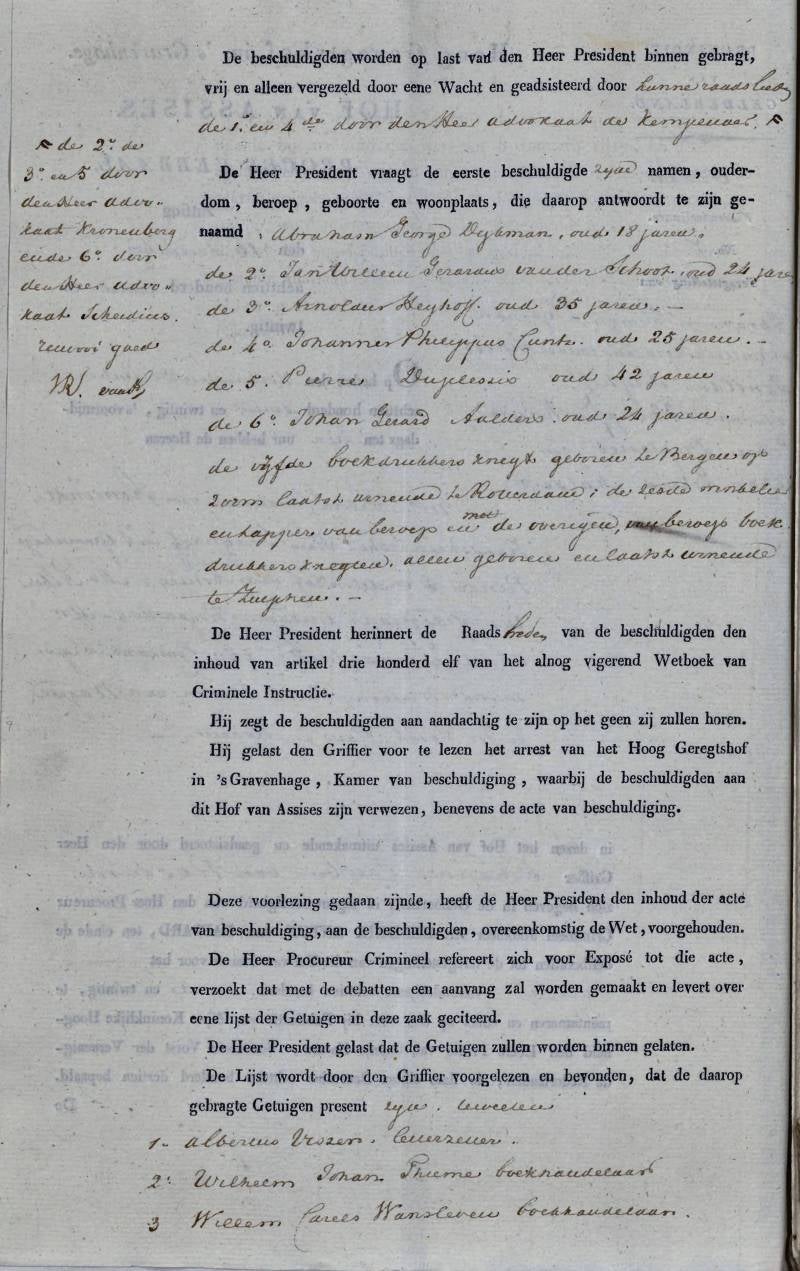 De beschuldigden worden op last van den Heer President binnen gebragt,
vrij en alleen vergezeld door eene Wacht en geadsisteerd door hunne raadslieden
de 1e. en 4de door den Heer advokaat de Kempenaer.
De Heer President vraagt de eerste beschuldigde zijne namen, ouder-
dom, beroep, geboorte en woonplaats, die daarop antwoordt te zijn ge-
naamd, Abraham George Dykman, oud 18 jaren.
de 2e. Jan Willem Gerardus van der Schoot, oud 24 jaren
de 3e. Arnoldus Heyhoff. oud 35 jaren. –
de 4e. Johannes Philippus Cuntz. oud 25 jaren. –
de 5. Pierre Duplessis oud 42 jaren
de 6e. Johan Gerard Aalders. oud 24 jaren.
de vyfde boekdrukkers knegt geboren te Bergen op
Zoom laatst wonende te Rotterdam; de zesde winkelier
en tapper van beroep en met de overigen, van beroep boek
drukkers knegten, allen geboren en laatst wonende
te Zutphen. –
de 2e. de
3e. en 5 door
den Heer advo-
kaat Kronenberg
en de 6e. door
den Heer advo-
kaat Scheidius.
renvooi goed
De Heer President herinnert de Raadslieden van de beschuldigden den
inhoud van artikel drie honderd elf van het alnog vigerend Wetboek van
Criminele Instructie.
Hij zegt de beschuldigden aan aandachtig te zijn op het geen zij zullen horen.
Hij gelast den Griffier voor te lezen het arrest van het Hoog Geregtshof
in 's Gravenhage, Kamer van beschuldiging, waarbij de beschuldigden aan
dit Hof van Assises zijn verwezen, benevens de acte van beschuldiging.
Deze voorlezing gedaan zijnde, heeft de Heer President den inhoud der acte
van beschuldiging, aan de beschuldigden, overeenkomstig de Wet, voorgehouden.
De Heer Procureur Crimineel refereert zich voor Exposé tot die acte,
verzoekt dat met de debatten een aanvang zal worden gemaakt en levert over
eene lijst der Getuigen in deze zaak geciteerd.
De Heer President gelast dat de Getuigen zullen worden binnen gelaten.
De Lijst wordt door den Griffier voorgelezen en bevonden, dat de daarop
gebragte Getuigen present zyn. te weten
1. Albertus
2. Wilhelm Johan Thieme boekhandelaar
3 Willem Carel Wansleven boekhandelaar.